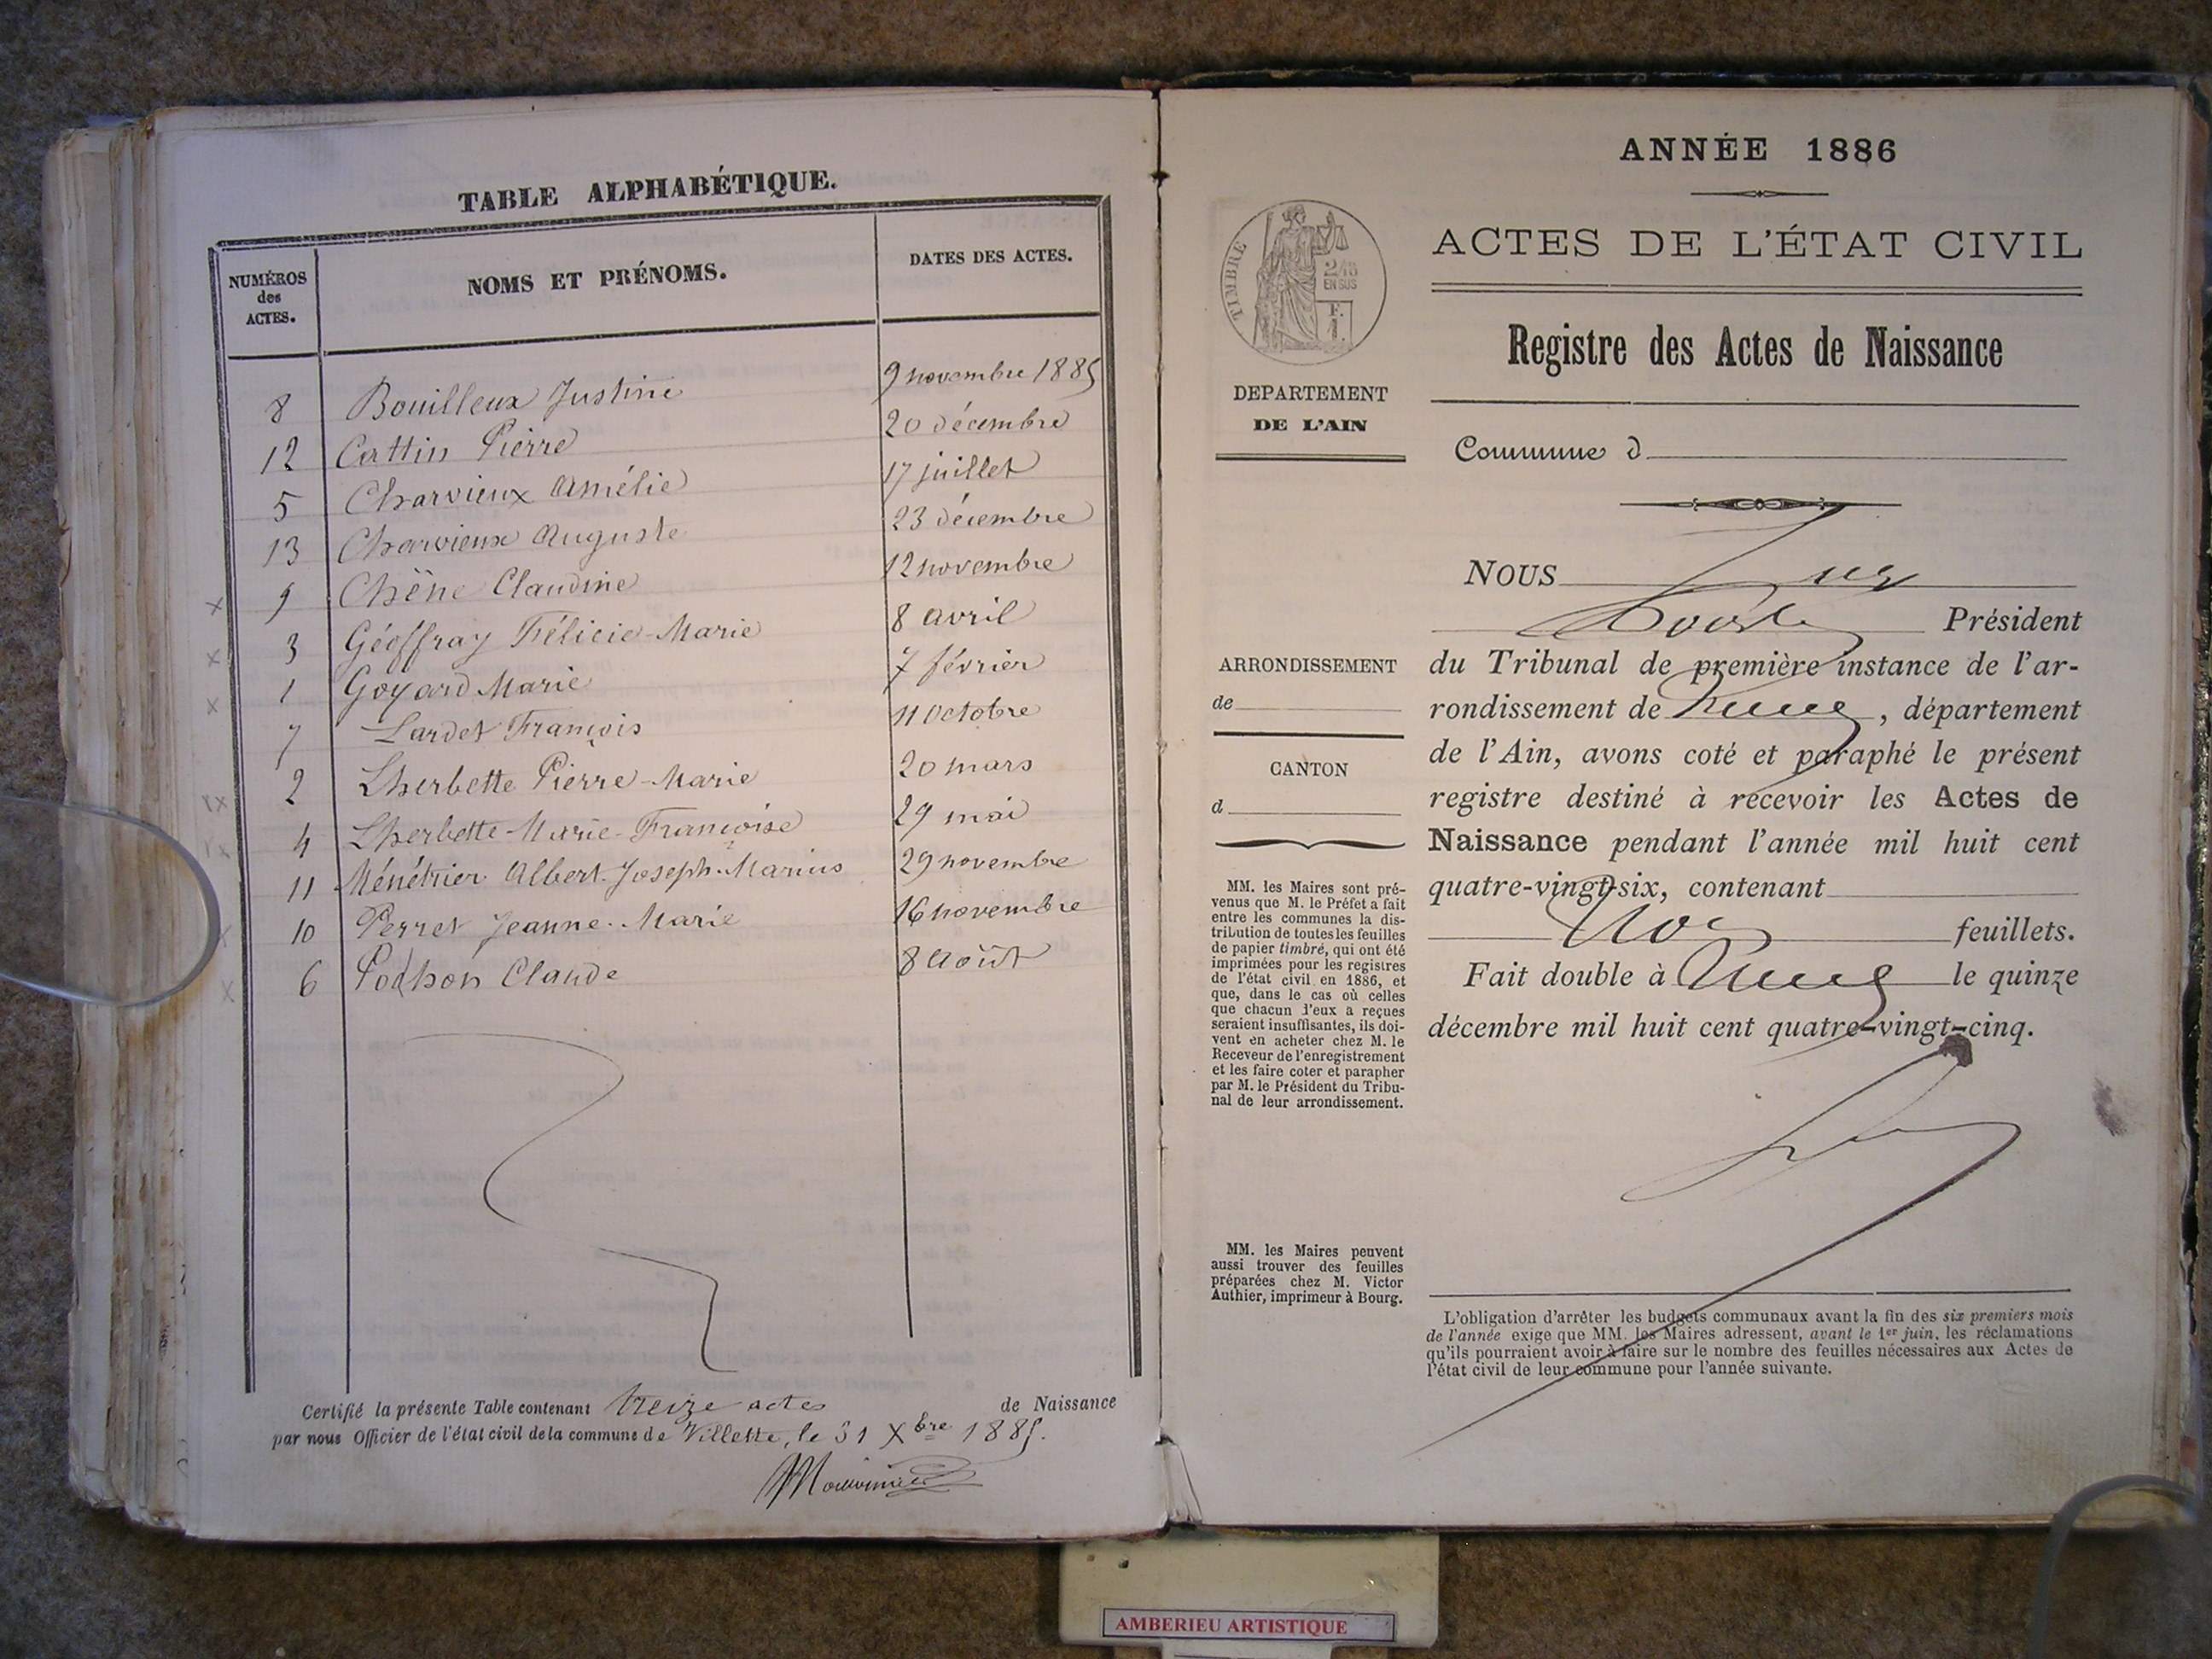 TABLE ALPHABÉTIQUE.
NUMÉROS des ACTES. NOMS ET PRÉNOMS. DATES DES ACTES.
8 Bouilleux Justine 9 novembre 1885
12 Cattin Pierre 20 décembre
5 Charvieux Amélie 17 juillet
13 Charvieux Auguste 23 décembre
9 Chêne Claudine 12 novembre
3 Géoffray Félicie-Marie 8 avril
1 Goyard Marie 7 février
7 Lardet François 11 octobre
2 Lherbette Pierre-Marie 20 mars
4 Lherbette Marie-Françoise 29 mai
11 Ménétrier Albert-Joseph-Marius 29 novembre
10 Perret Jeanne-Marie 16 novembre
6 Claude 8 août
Certifié la présente Table contenant treize actes de Naissance
par nous Officier de l'état civil de la commune de Villette, le 31 Xbre 1885.
ANNÉE 1886
ACTES DE L'ÉTAT CIVIL
Registre des Actes de Naissance
Commune d
TIMBRE
2/10
EN SUS
F.
1.
DEPARTEMENT
DE L'AIN
ARRONDISSEMENT
de
CANTON
d
MM. les Maires sont pré-
venus que M. le Préfet a fait
entre les communes la dis-
tribution de toutes les feuilles
de papier timbré, qui ont été
imprimées pour les registres
de l'état civil en 1886, et
que, dans le cas où celles
que chacun d'eux a reçues
seraient insuffisantes, ils doi-
vent en acheter chez M. le
Receveur de l'enregistrement
et les faire coter et parapher
par M. le Président du Tribu-
nal de leur arrondissement.
MM. les Maires peuvent
aussi trouver des feuilles
préparées chez M. Victor
Authier, imprimeur à Bourg.
NOUS
Président
du Tribunal de première instance de l'ar-
rondissement de , département
de l'Ain, avons coté et paraphé le présent
registre destiné à recevoir les Actes de
Naissance pendant l'année mil huit cent
quatre-vingt-six, contenant
feuillets.
Fait double à le quinze
décembre mil huit cent quatre-vingt-cinq.
L'obligation d'arrêter les budgets communaux avant la fin des six premiers mois
de l'année exige que MM. les Maires adressent, avant le 1er juin, les réclamations
qu'ils pourraient avoir à faire sur le nombre des feuilles nécessaires aux Actes de
l'état civil de leur commune pour l'année suivante.
AMBERIEU ARTISTIQUE